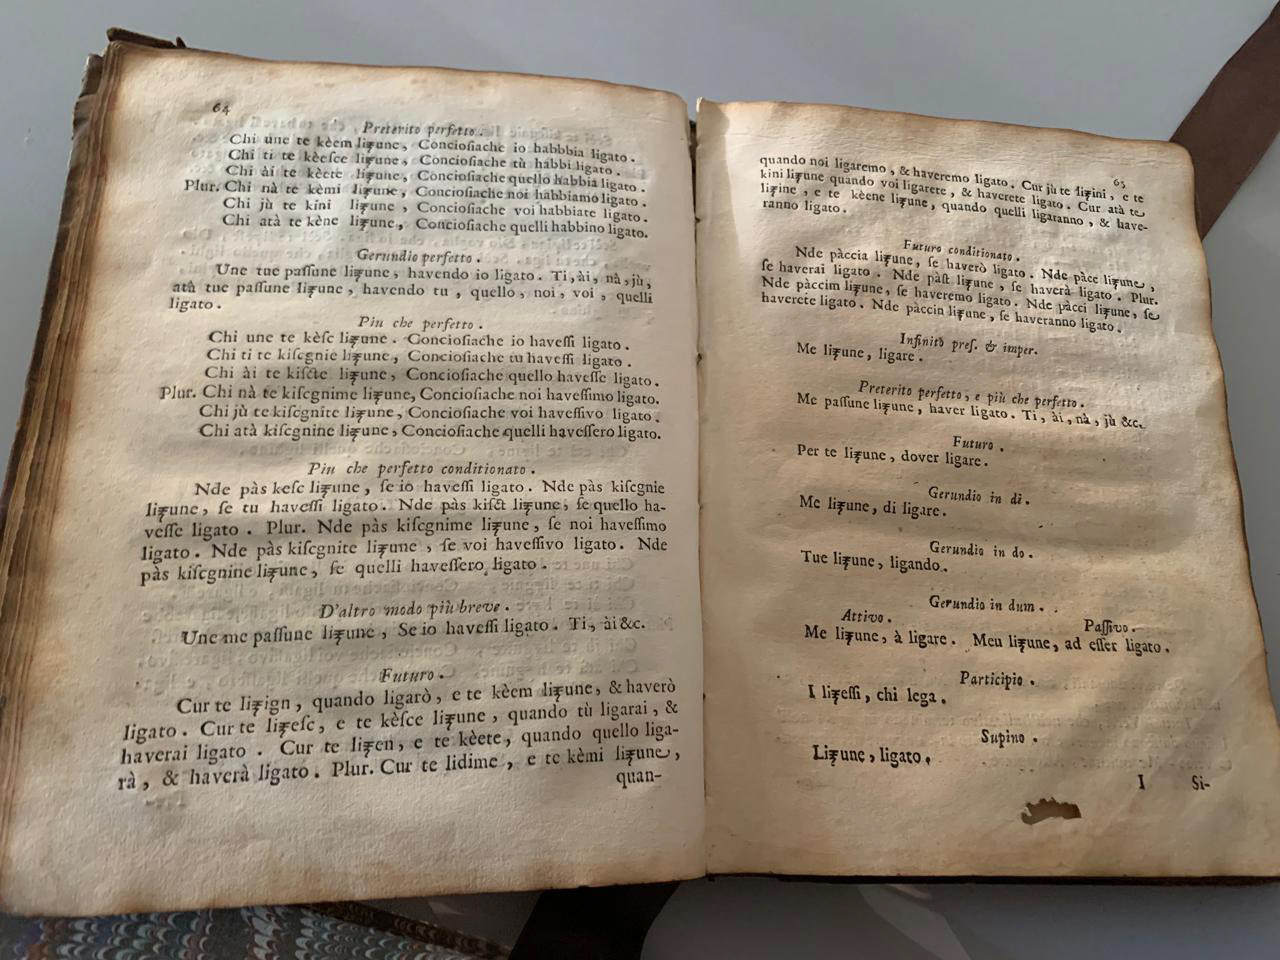 64
Preterito perfetto.
Chi une te kèem liꝫune, Conciosiache io habbbia ligato.
Chi ti te kèeſce liꝫune, Concioſiache tù habbi ligato.
Chi ài te kèete liꝫune, Concioſiache quello habbia ligato.
Plur. Chi nà te kèmi liꝫune, Concioſiache noi habbiamo ligato.
Chi jù te kini liꝫune, Concioſiache voi habbiate ligato.
Chi atà te kène liꝫune, Concioſiache quelli habbino ligato.
Gerundio perfetto.
Une tue paſſune liꝫune, havendo io ligato. Ti, ài, nà, jù,
atà tue paſſune liꝫune, havendo tu, quello, noi, voi, quelli
ligato.
Piu che perfetto.
Chi une te kèſc liꝫune. Concioſiache io haveſſi ligato.
Chi ti te kiſcgnie liꝫune, Concioſiache tu haveſſi ligato.
Chi ài te kiſcte liꝫune, Concioſiache quello haveſſe ligato.
Plur. Chi nà te kiſcgnime liꝫune, Concioſiache noi haveſſimo ligato.
Chi jù te kiſcgnite liꝫune, Concioſiache voi haveſſivo ligato.
Chi atà kiſcgnine liꝫune, Concioſiache quelli haveſſero ligato.
Piu che perfetto conditionato.
Nde pàs keſc liꝫune, ſe io haveſſi ligato. Nde pàs kiſcgnie
liꝫune, ſe tu haveſſi ligato. Nde pàs kiſct liꝫune, ſe quello ha-
veſſe ligato. Plur. Nde pàs kiſcgnime liꝫune, ſe noi haveſſimo
ligato. Nde pàs kiſcgnite liꝫune, ſe voi haveſſivo ligato. Nde
pàs kiſcgnine liꝫune, ſe quelli haveſſero ligato.
D'altro modo più breve.
Une me paſſune liꝫune, Se io haveſſi ligato. Ti, ài &c.
Futuro.
Cur te liꝫign, quando ligarò, e te kèem liꝫune, & haverò
ligato. Cur te liꝫeſc, e te kèſce liꝫune, quando tù ligarai, &
haverai ligato. Cur te liꝫen, e te kèete, quando quello liga-
rà, & haverà ligato. Plur. Cur te lidime, e te kèmi liꝫune,
quan-
65
quando noi ligaremo, & haveremo ligato. Cur jù te liꝫini, e te
kini liꝫune quando voi ligarete, & haverete ligato. Cur atà te
liꝫine, e te kèene liꝫune, quando quelli ligaranno, & have-
ranno ligato.
Futuro conditionato.
Nde pàccia liꝫune, ſe haverò ligato. Nde pàce liꝫune,
ſe haverai ligato. Nde pàſt liꝫune, ſe haverà ligato. Plur.
Nde pàccim liꝫune, ſe haveremo ligato. Nde pàcci liꝫune, ſe
haverete ligato. Nde pàccin liꝫune, ſe haveranno ligato.
Infinito preſ. & imper.
Me liꝫune, ligare.
Preterito perfetto, e più che perfetto.
Me paſſune liꝫune, haver ligato. Ti, ài, nà, jù &c.
Futuro.
Per te liꝫune, dover ligare.
Gerundio in dî.
Me liꝫune, di ligare.
Gerundio in do.
Tue liꝫune, ligando.
Gerundio in dum.
Attivo. Paſſivo.
Me liꝫune, à ligare. Meu liꝫune, ad eſſer ligato.
Participio.
I liꝫeſſi, chi lega.
Supino.
Liꝫune, ligato.
I Si-